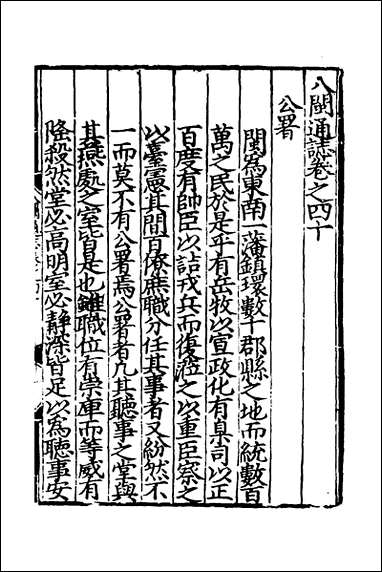 八閩通誌卷之四十
公署
閩爲東南一藩鎮環數十郡縣之地而統數百
萬之民於是乎有岳牧以宣政化有臬司以正
百度有帥臣以詰戎兵而復涖之以重臣察之
以臺憲其間百僚庶職分任其事者又紛然不
一而莫不有公署焉公署者凡其聽事之堂與
其燕處之室皆是也雖職位有崇庳而等威有
隆殺然堂必高明室必靜深皆足以爲聽事安